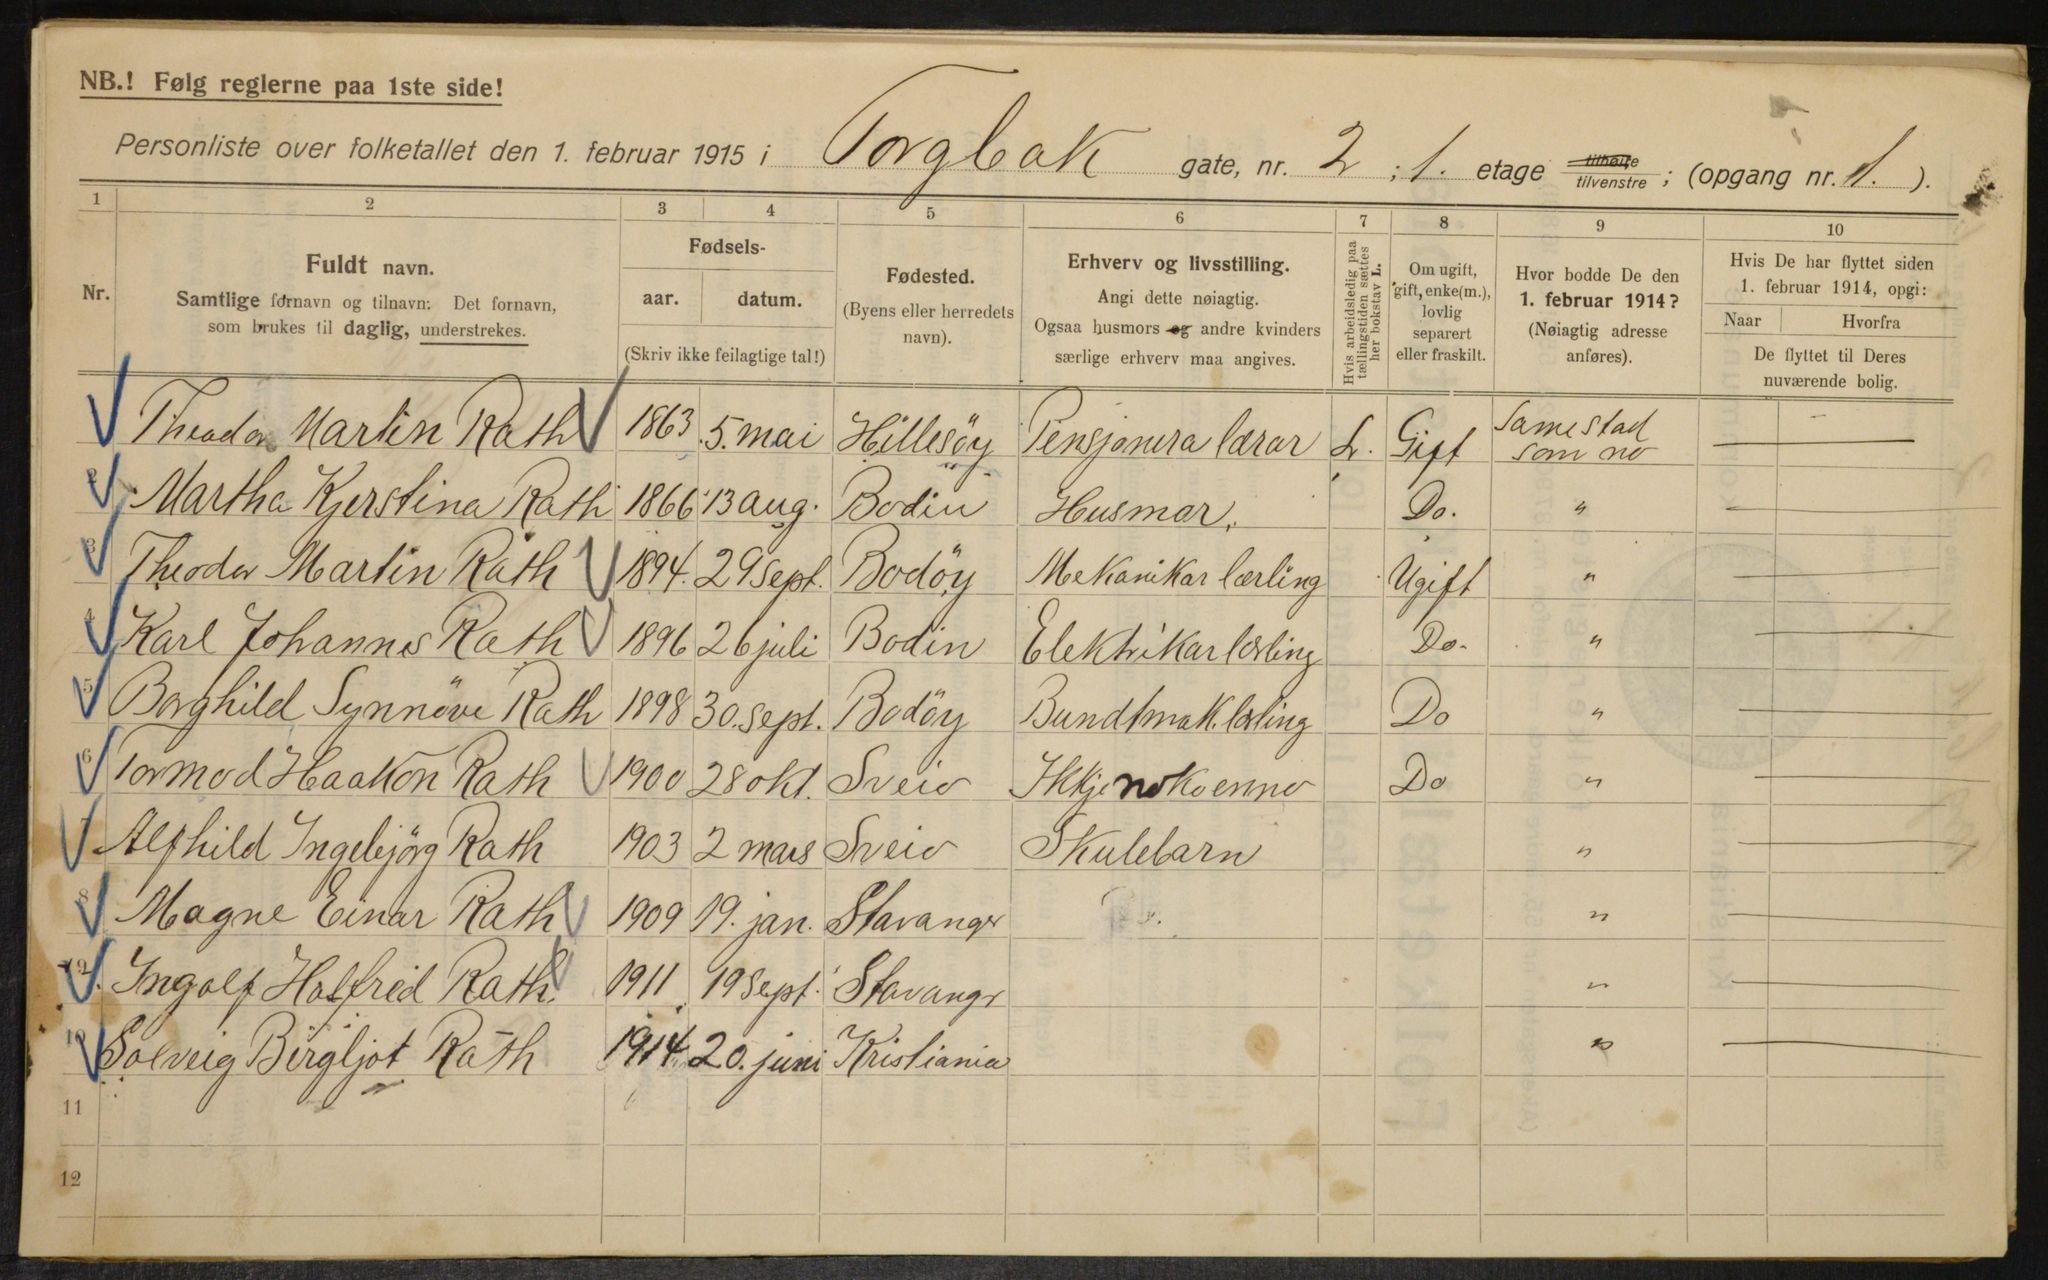 NB.! Følg reglerne paa 1ste side!
Personliste over folketallet den 1. februar 1915 i Torgbak gate, nr. 2 ; 1. etage tilhøire tilvenstre ; (opgang nr. 1. ).
1 2 3 4 5 6 7 8 9 10
Nr.
Fuldt navn.
Samtlige fornavn og tilnavn: Det fornavn,
som brukes til daglig, understrekes.
Fødsels-
aar. datum.
(Skriv ikke feilagtige tal!)
Fødested.
(Byens eller herredets
navn).
Erhverv og livsstilling.
Angi dette nøiagtig.
Ogsaa husmors og andre kvinders
særlige erhverv maa angives.
Hvis arbeidsledig paa
tællingstiden sættes
her bokstav L.
Om ugift,
gift, enke(m.),
lovlig
separert
eller fraskilt.
Hvor bodde De den
1. februar 1914?
(Nøiagtig adresse
anføres).
Hvis De har flyttet siden
1. februar 1914, opgi:
Naar Hvorfra
De flyttet til Deres
nuværende bolig.
Theodor Martin Rath 1863 5. mai Hillesöy Pensjonera lærar L. Gift Samestad som no
2 Martha Kjerstina Rath 1866 13 aug. Bodin Husmor. Do. "
3 Theodor Martin Rath 1894. 29 sept. Bodöy Mekanikar lærling Ugift "
4 Karl Johannes Rath 1896 26 juli Bodin Elektrikarlærling Do. "
5 Borghild Synnöve Rath 1898 30. sept. Bodöy Bundtmak. lærling Do "
6 Tormod Haakon Rath 1900 28 okt. Sveio Ikkje noko enno Do "
7 Alfhild Ingebjörg Rath 1903 2 mars Sveio Skulebarn "
8 Magne Einar Rath 1909 19. jan. Stavanger "
9 Ingolf Halfred Rath. 1911 19 sept. Stavangr "
10 Solveig Bergljot Rath 1914 20. juni Kristiania "
11
12